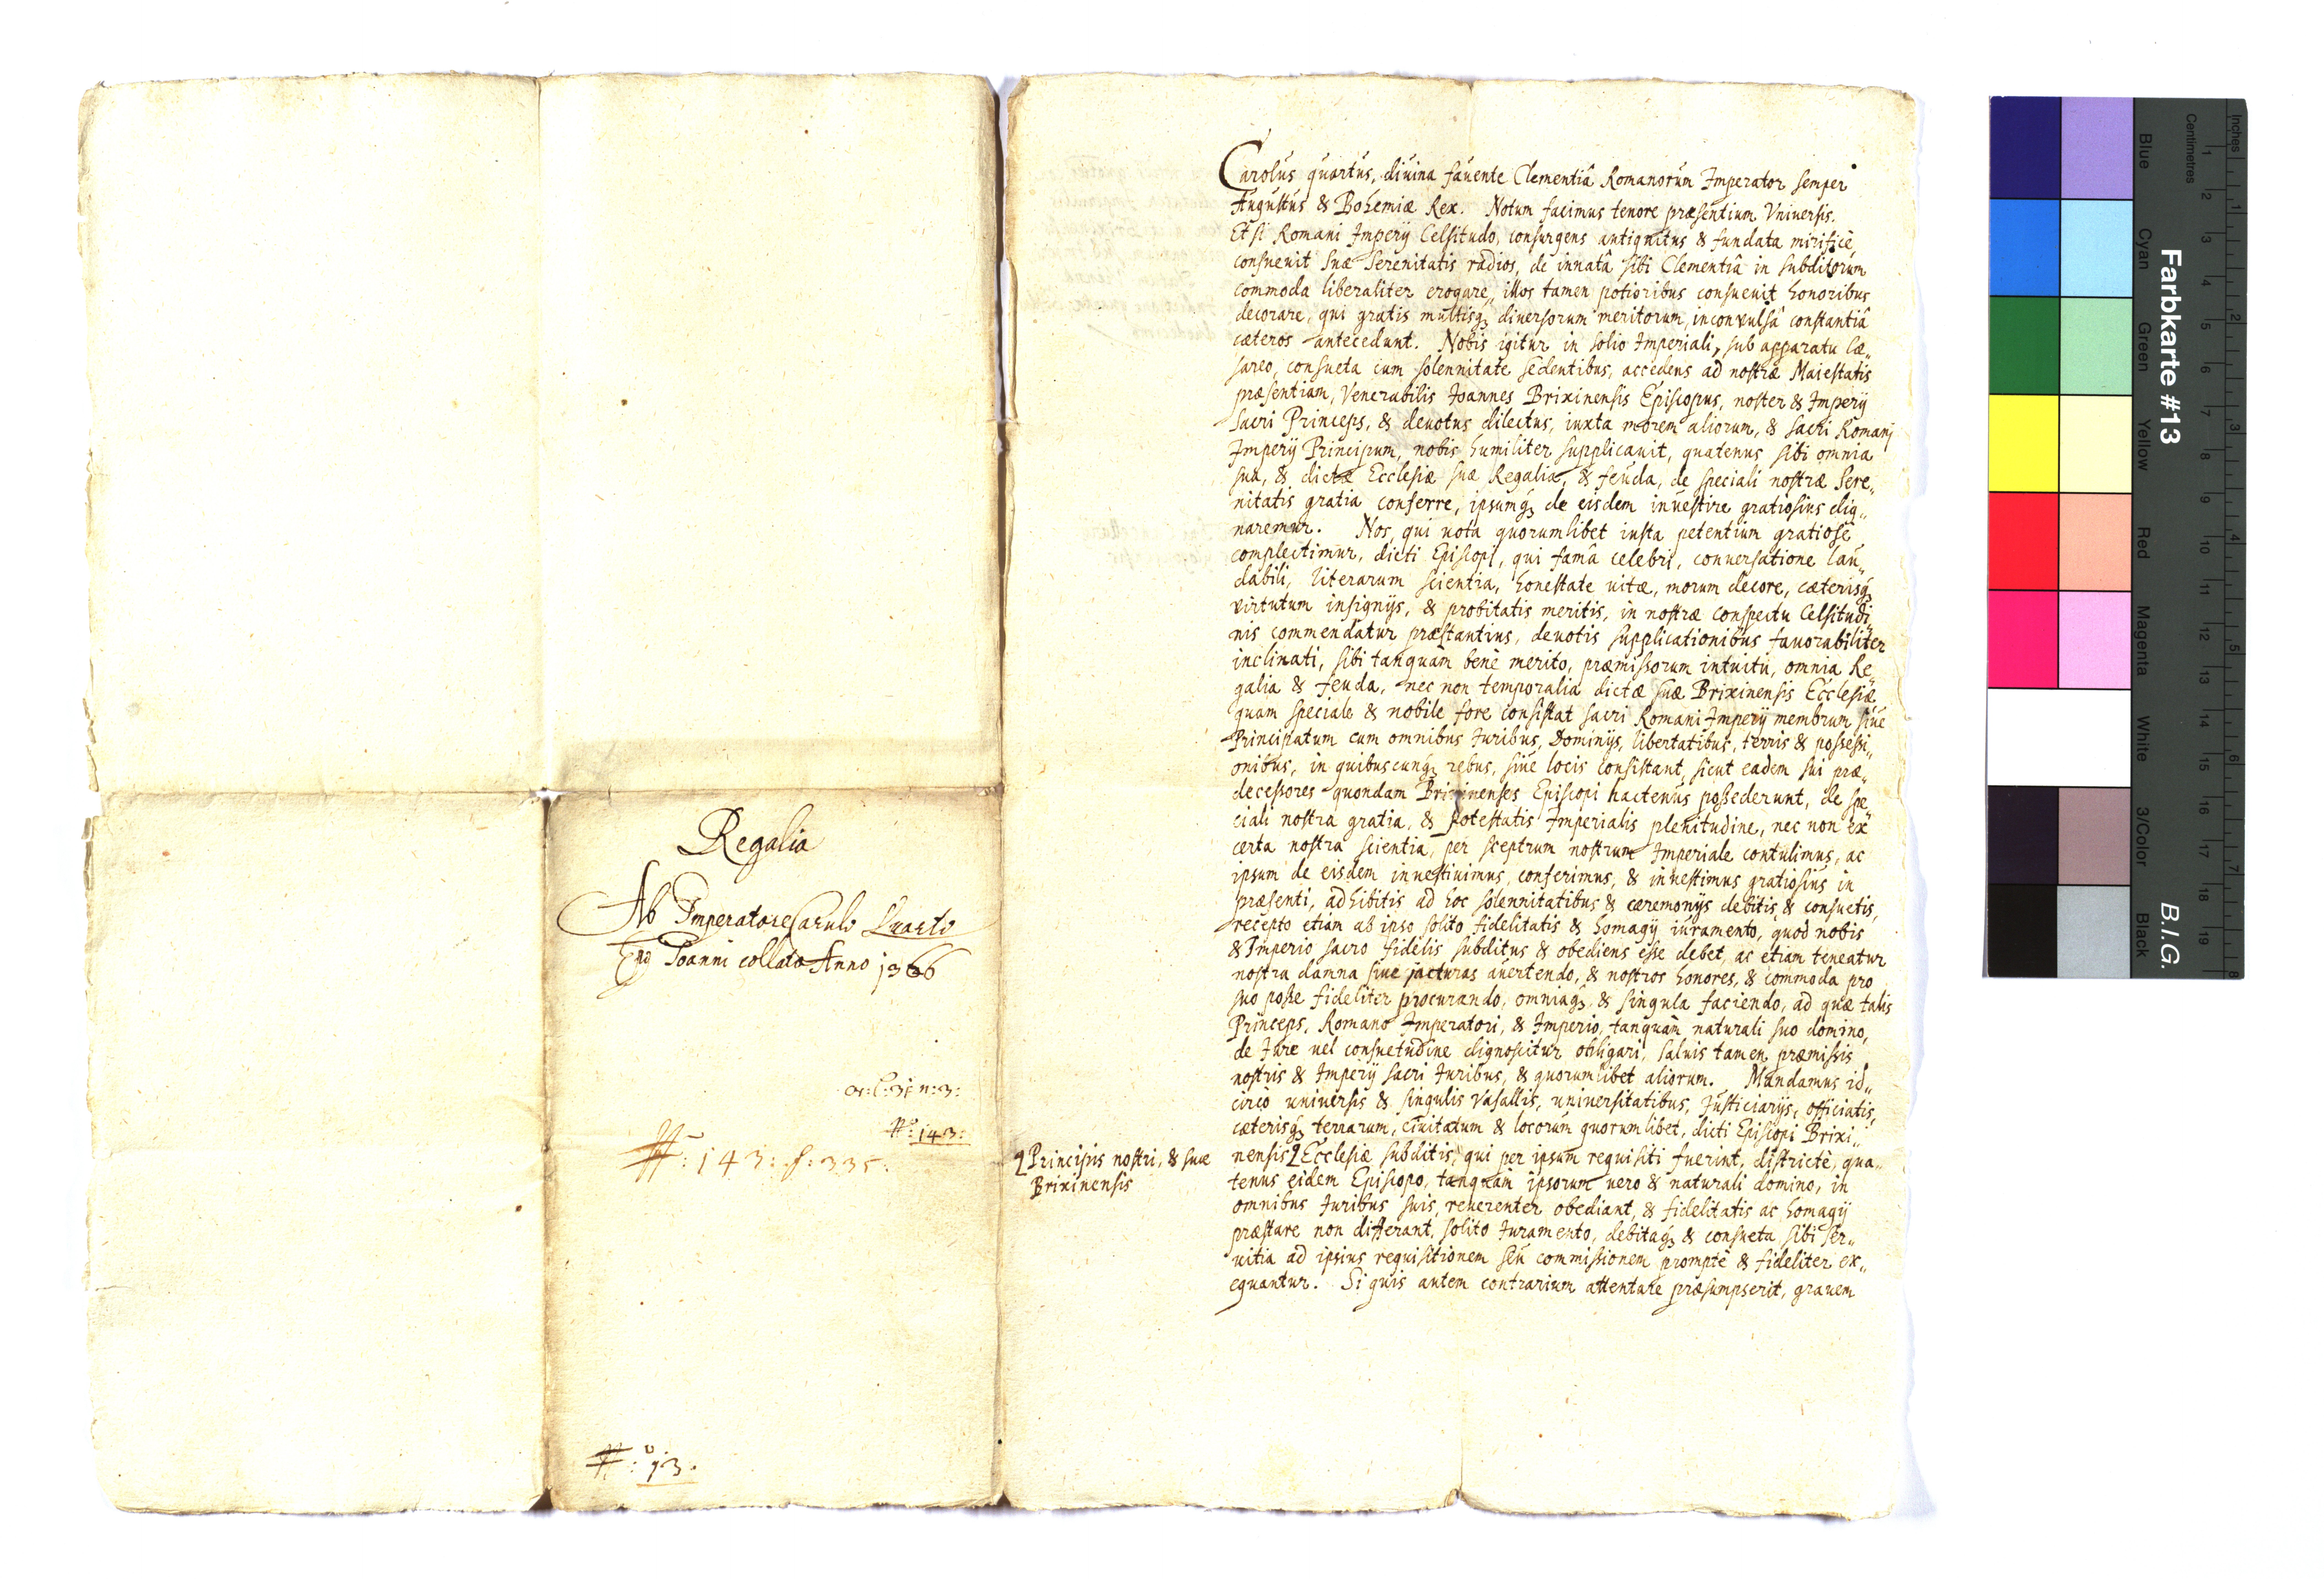 Regalia
Ab Imperatore Carulo Quarto
Joanni collata Anno 1366
N: 143:
N: 143: f: 335:
N: 13.
Carolus quartus, diuina fauente Clementiâ Romanorum Imperator semper
Augustus & Bohemiæ Rex. Notum facimus tenore præsentium Vniuersis.
Etsi Romani Imperÿ Celsitudo, consurgens antiquitus & fundata mirificè,
consueuit suæ Serenitatis radios, de innatâ sibi Clementiâ in subditorum
commoda liberaliter erogare, illos tamen potioribus consueuit honoribus
decorare, qui gratis multisq; diuersorum meritorum, inconvulsâ constantiâ
cæteros antecedunt. Nobis igitur in solio Imperiali, sub apparatu Cæ„
sareo, consueta cum solennitate sedentibus, accedens ad nostræ Maiestatis
præsentiam, Venerabilis Joannes Brixinensis Episcopus, noster & Imperÿ
Sacri Princeps, & deuotus dilectus, iuxta morem aliorum, & sacri Romanj
Imperÿ Principum, nobis humiliter supplicauit, quatenus sibi omnia
sua, & dictæ Ecclesiæ suæ Regalia, & feuda, de speciali nostræ Sere„
nitatis gratia conferre, ipsumq; de eisdem inuestire gratiosius dig„
naremur. Nos, qui uota quorumlibet iusta petentium gratiosè
complectimur, dicti Episcopi, qui famâ celebri, conuersatione lau„
dabili, literarum scientia, honestate uitæ, morum decore, cæterisq;
virtutum insignÿs, & probitatis meritis, in nostræ conspectu Celsitudi„
nis commendatur præstantius, deuotis supplicationibus fauorabiliter
inclinati, sibi tanquàm benè merito, præmissorum intuitu, omnia Re„
galia & feuda, nec non temporalia dictæ suæ Brixinensis Ecclesiæ
quam speciale & nobile fore consistat sacri Romani Imperÿ membrum siue
Principatum cum omnibus Juribus, Dominÿs, libertatibus, terris & possessi„
onibus, in quibuscunq; rebus, siue locis consistant, sicut eadem sui præ„
decessores quondam Brixinenses Episcopi hactenus possederunt, de spe
ciali nostra gratia, & potestatis Imperialis plenitudine, nec non ex
certa nostra scientia, per sceptrum nostrum Imperiale contulimus, ac
ipsum de eisdem inuestiuimus, conferimus, & inuestimus gratiosius in
præsenti, adhibitis ad hoc solennitatibus & cæremonÿs debitis & consuetis,
recepto etiam ab ipso solito fidelitatis & homagÿ iuramento, quod nobis
& Imperio sacro fidelis subditus & obediens esse debet, ac etiam teneatur
nostra damna siue jacturas auertendo, & nostros honores, & commoda pro
suo posse fideliter procurando, omniaq; & singula faciendo, ad quæ talis
Princeps, Romano Imperatori, & Imperio, tanquàm naturali suo domino,
de Jure uel consuetudine dignoscitur obligari, saluis tamen præmissis
nostris & Imperÿ sacri Juribus, & quorumlibet aliorum. Mandamus id„
circò uniuersis & singulis Vasallis, uniuersitatibus, Justiciarÿs, officiatis,
cæterisq; terrarum, ciuitatum & locorum quorumlibet, dicti Episcopi Brixi„
Principis nostri, & suæ
Brixinensis
nensis Ecclesiæ subditis, qui per ipsum requisiti fuerint, districtè, qua„
tenus eidem Episcopo, tanquam ipsorum uero & naturali domino, in
omnibus Juribus suis, reuerenter obediant, & fidelitatis ac homagÿ
præstare non differant, solito Juramento, debitaq; & consueta sibi ser„
uitia ad ipsius requisitionem seu commissionem promptè & fideliter ex„
equantur. Si quis autem contrarium attentare præsumpserit, grauem
Farbkarte #13
B.I.G.
Blue Cyan Green Yellow Red Magenta White 3/Color Black
Centimetres 1 2 3 4 5 6 7 8 9 10 11 12 13 14 15 16 17 18 19
Inches 1 2 3 4 5 6 7 8